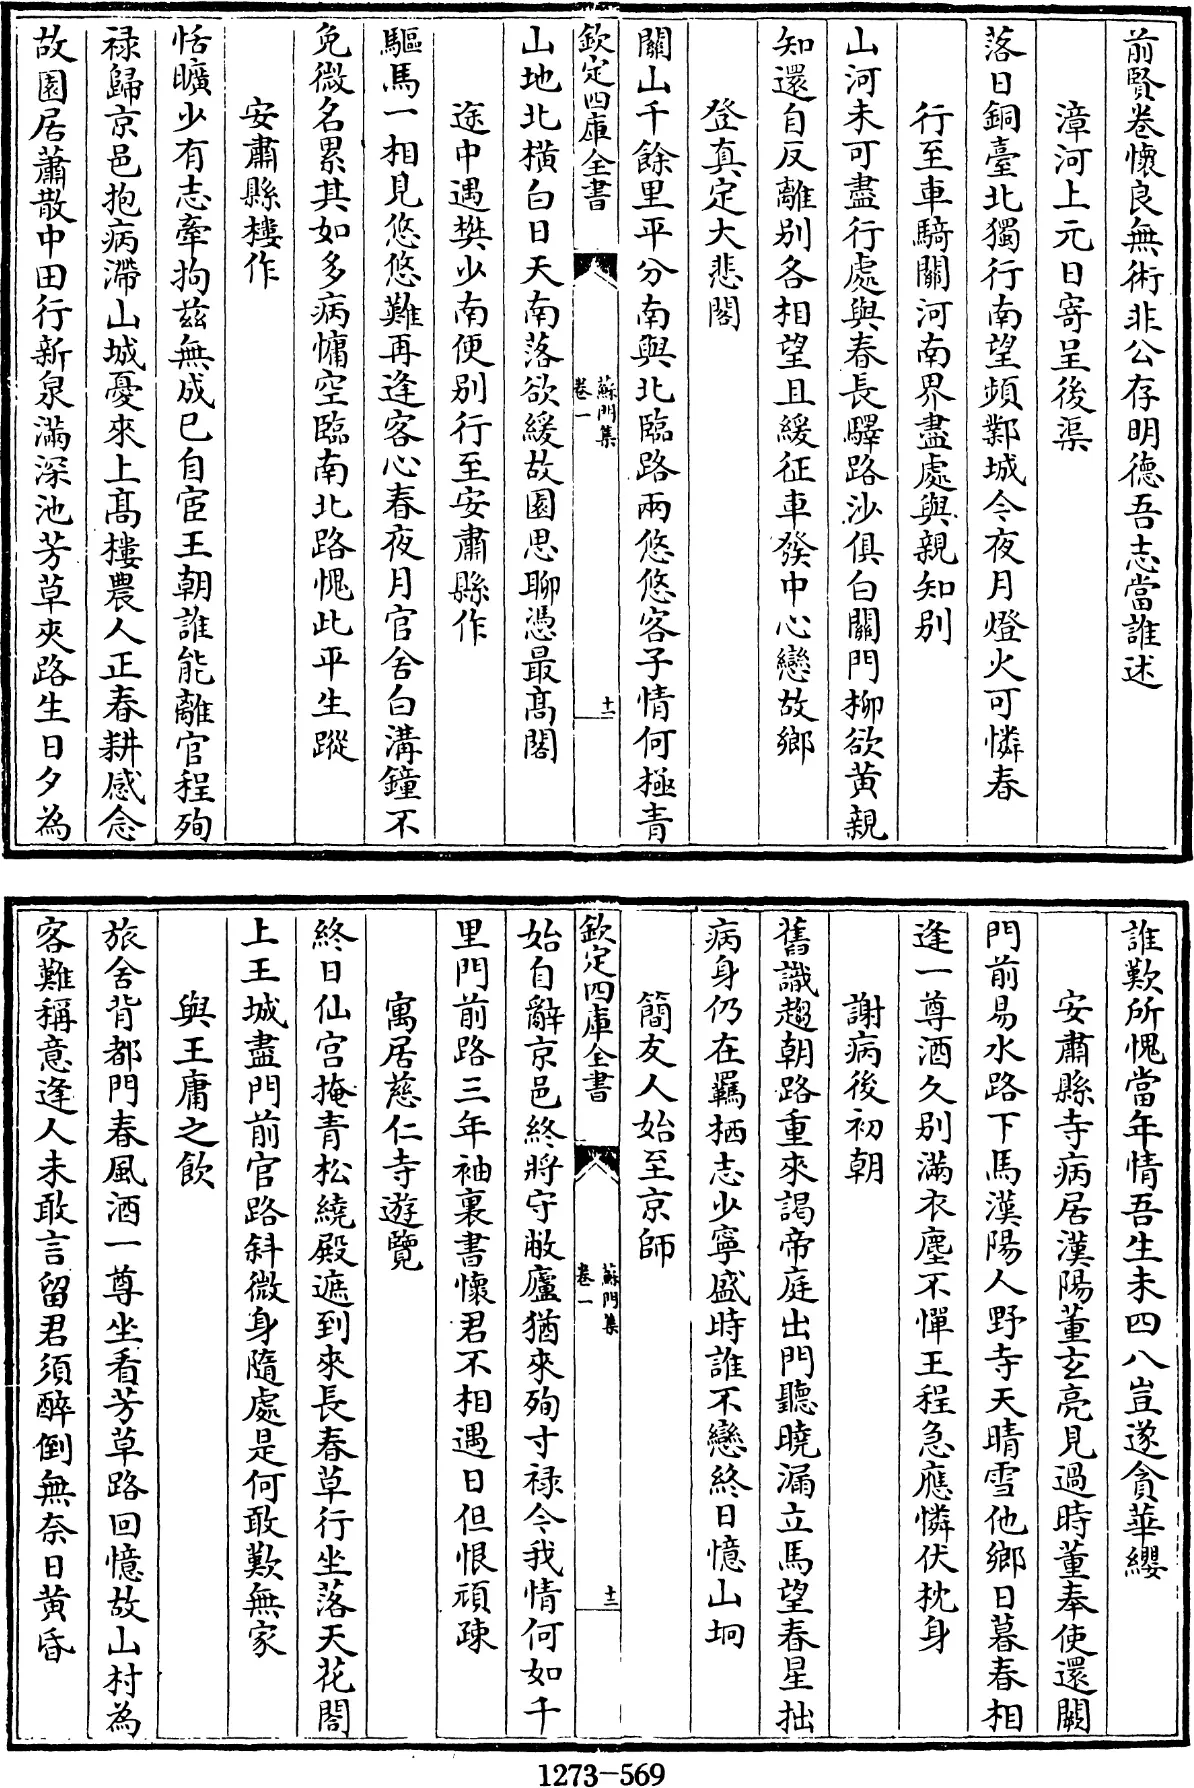 前賢卷懷良無術非公存明德吾志當誰述
漳河上元日寄呈後渠
落日銅臺北獨行南望頻鄴城今夜月燈火可憐春
行至車騎關河南界盡處與親知别
山河未可盡行處與春長驛路沙俱白關門柳欲黄親
知還自反離别各相望且緩征車發中心戀故鄉
登真定大悲閣
關山千餘里平分南與北臨路兩悠悠客子情何極青
欽定四庫全書
蘇門集
卷一
十一
山地北横白日天南落欲緩故園思聊憑最髙閣
途中遇樊少南便别行至安肅縣作
驅馬一相見悠悠難再逢客心春夜月官舍白溝鐘不
免微名累其如多病慵空臨南北路愧此平生蹤
安肅縣樓作
恬曠少有志牽拘兹無成已自宦王朝誰能離官程殉
禄歸京邑抱病滯山城憂來上髙樓農人正春耕感念
故園居蕭散中田行新泉滿深池芳草夾路生日夕為
誰歎所愧當年情吾生未四八豈遂貪華纓
安肅縣寺病居漢陽董玄亮見過時董奉使還闕
門前易水路下馬漢陽人野寺天晴雪他鄉日暮春相
逢一尊酒久别滿衣塵不憚王程急應憐伏枕身
謝病後初朝
舊識趨朝路重來謁帝庭出門聽曉漏立馬望春星拙
病身仍在羈栖志少寧盛時誰不戀終日憶山坰
簡友人始至京師
欽定四庫全書
蘇門集
卷一
十二
始自辭京邑終將守敝廬猶來殉寸禄今我情何如千
里門前路三年袖裏書懷君不相遇日但恨頑疎
寓居慈仁寺遊覽
終日仙宫掩青松繞殿遮到來長春草行坐落天花閣
上王城盡門前官路斜微身隨處是何敢歎無家
與王庸之飲
旅舍背都門春風酒一尊坐看芳草路回憶故山村為
客難稱意逢人未敢言留君須醉倒無奈日黄昏
1273-569